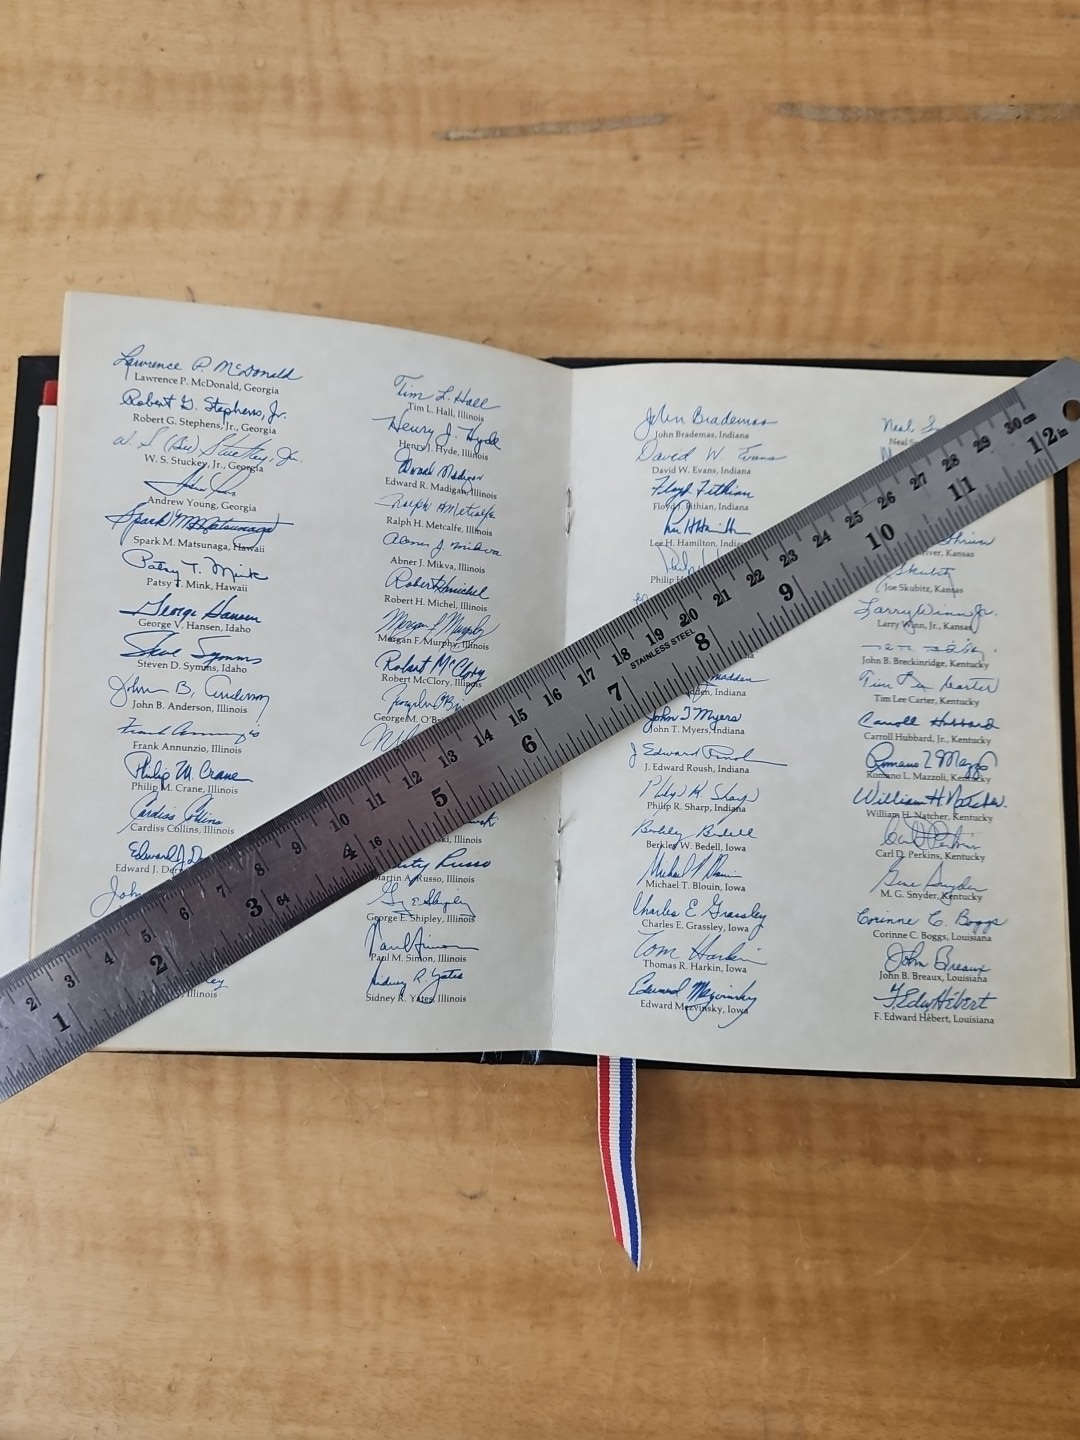 Lawrence P. McDonald
Lawrence P. McDonald, Georgia
Robert G. Stephens, Jr.
Robert G. Stephens, Jr., Georgia
W. S. (Bill) Stuckey, Jr.
W. S. Stuckey, Jr., Georgia
Andrew Young, Georgia
Spark M. Matsunaga
Spark M. Matsunaga, Hawaii
Patsy T. Mink
Patsy T. Mink, Hawaii
George Hansen
George V. Hansen, Idaho
Steve Symms
Steven D. Symms, Idaho
John B. Anderson
John B. Anderson, Illinois
Frank Annunzio
Frank Annunzio, Illinois
Philip M. Crane
Philip M. Crane, Illinois
Cardiss Collins
Cardiss Collins, Illinois
Edward J.
Edward J.
John
Illinois
Tim L. Hall
Tim L. Hall, Illinois
Henry J. Hyde
Henry J. Hyde, Illinois
Edward Madigan
Edward R. Madigan, Illinois
Ralph H Metcalfe
Ralph H. Metcalfe, Illinois
Abner J. Mikva
Abner J. Mikva, Illinois
Robert H. Michel
Robert H. Michel, Illinois
Morgan F. Murphy
Morgan F. Murphy, Illinois
Robert McClory
Robert McClory, Illinois
George M.
Illinois
Marty Russo
Martin A. Russo, Illinois
George E. Shipley, Illinois
Paul Simon
Paul M. Simon, Illinois
Sidney R. Yates
Sidney R. Yates, Illinois
John Brademas
John Brademas, Indiana
David W. Evans
David W. Evans, Indiana
Floyd Fithian
Floyd J. Fithian, Indiana
Lee H. Hamilton
Lee H. Hamilton, Indiana
Philip
Philip H.
Indiana
John T Myers
John T. Myers, Indiana
J Edward Roush
J. Edward Roush, Indiana
Philip R. Sharp
Philip R. Sharp, Indiana
Berkley Bedell
Berkley W. Bedell, Iowa
Michael T Blouin
Michael T. Blouin, Iowa
Charles E Grassley
Charles E. Grassley, Iowa
Tom Harkin
Thomas R. Harkin, Iowa
Edward Mezvinsky
Edward Mezvinsky, Iowa
Neal
Neal
Kansas
Skubitz
Joe Skubitz, Kansas
Larry Winn Jr.
Larry Winn, Jr., Kansas
John B. Breckinridge, Kentucky
Tim Lee Carter
Tim Lee Carter, Kentucky
Carroll Hubbard
Carroll Hubbard, Jr., Kentucky
Romano L Mazzoli
Romano L. Mazzoli, Kentucky
William H. Natcher
William H. Natcher, Kentucky
Carl D Perkins
Carl D. Perkins, Kentucky
Gene Snyder
M. G. Snyder, Kentucky
Corinne C. Boggs
Corinne C. Boggs, Louisiana
John Breaux
John B. Breaux, Louisiana
F. Edw Hébert
F. Edward Hébert, Louisiana
2 3 4 5 6 7 8 9 10 11 12 13 14 15 16 17 18 19 20 21 22 23 24 25 26 27 28 29 30 cm
STAINLESS STEEL
1 2 3 64 4 16 5 6 7 8 9 10 11 12 in